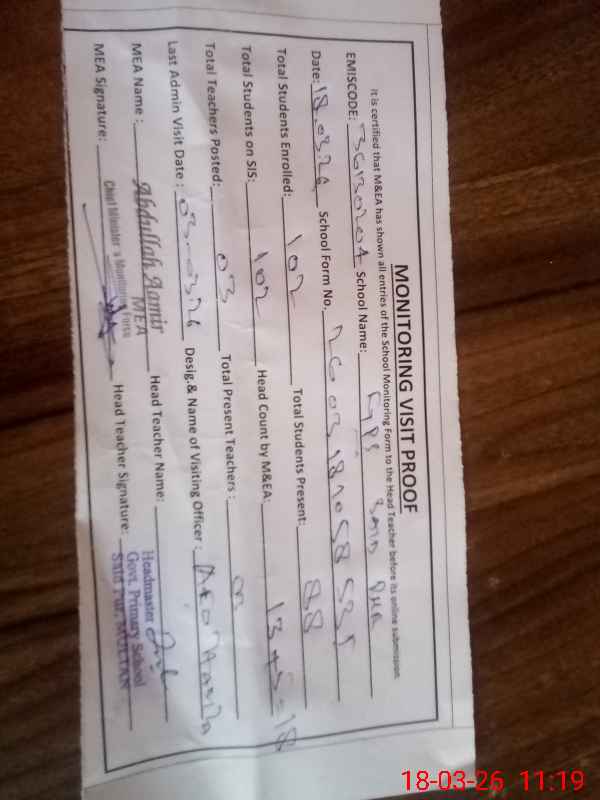 MONITORING VISIT PROOF
It is certified that M&EA has shown all entries of the School Monitoring Form to the Head Teacher before its online submission.
EMISCODE: 36130204 School Name: GPS SAID PUR
Date: 18.03.26 School Form No.
Total Students Enrolled: 102 Total Students Present: 88
Total Students on SIS: 102 Head Count by M&EA:
Total Teachers Posted: 03 Total Present Teachers:
Last Admin Visit Date: 03-03-26 Desig.& Name of Visiting Officer: AEO
MEA Name: Abdullah Aamir Head Teacher Name:
MEA
MEA Signature: Head Teacher Signature:
Chief Minister's Monitoring Force
Headmaster
Govt. Primary School
Said Pur, MULTAN
18-03-26 11:19